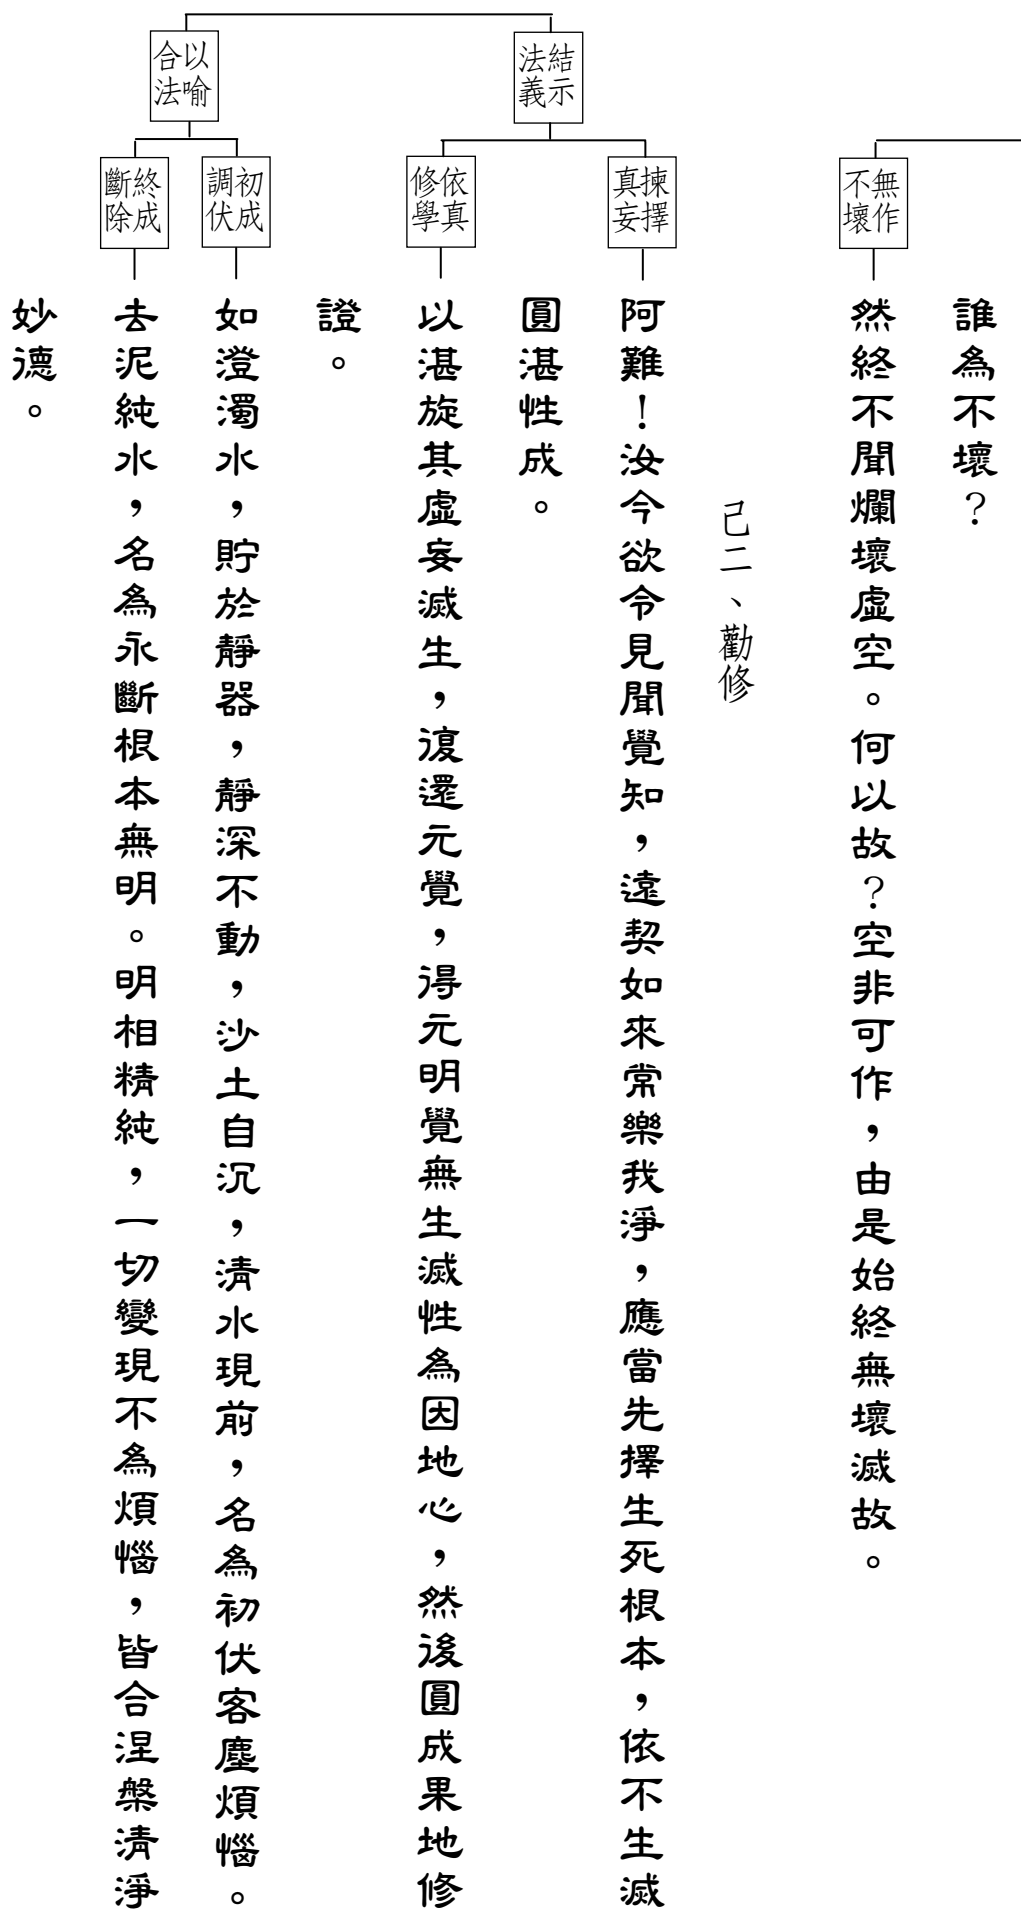 誰為不壞？
無作不壞
然終不聞爛壞虛空。何以故？空非可作，由是始終無壞滅故。
己二、勸修
結示法義
揀擇真妄
阿難！汝今欲令見聞覺知，遠契如來常樂我淨，應當先擇生死根本，依不生滅
圓湛性成。
依真修學
以湛旋其虛妄滅生，復還元覺，得元明覺無生滅性為因地心，然後圓成果地修
證。
以喻合法
初成調伏
如澄濁水，貯於靜器，靜深不動，沙土自沉，清水現前，名為初伏客塵煩惱。
終成斷除
去泥純水，名為永斷根本無明。明相精純，一切變現不為煩惱，皆合涅槃清淨
妙德。